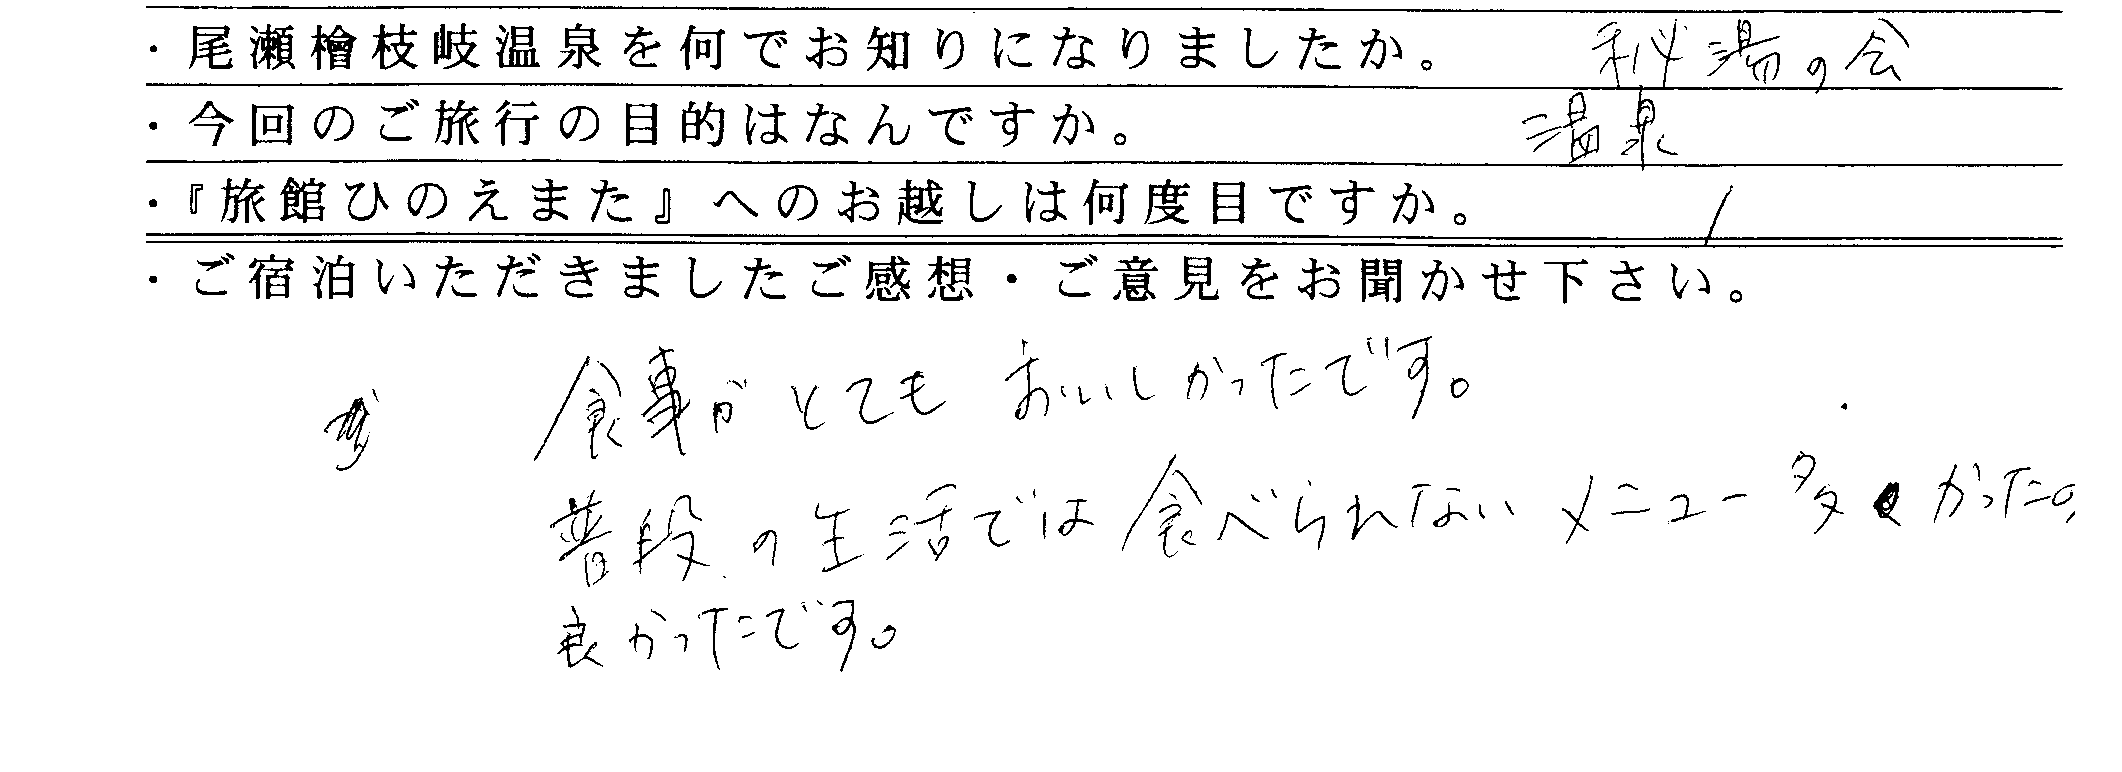 ・尾瀬檜枝岐温泉を何でお知りになりましたか。 秘湯の会
・今回のご旅行の目的はなんですか。 温泉
・『旅館ひのえまた』へのお越しは何度目ですか。 1
・ご宿泊いただきましたご感想・ご意見をお聞かせ下さい。
食事がとてもおいしかったです。
普段の生活では食べられないメニュー多かった。
良かったです。